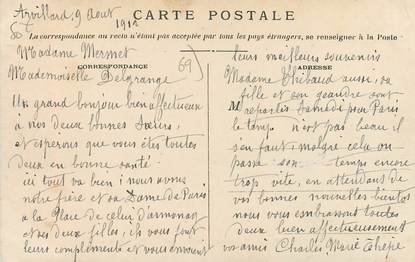 Arvillard, 9 Aout 1912
CARTE POSTALE
La correspondance au recto n'étant pas acceptée par tous les pays étrangers, se renseigner à la Poste
Madame Mermet
Mademoiselle Delgrange
69
CORRESPONDANCE
Un grand bonjour bien affectueux
à nos deux bonnes Sœurs,
et esperons que vous êtes toutes
deux en bonne santé
ici tout va bien; nous avons
notre frère et sa Dame de Paris
a la Place de celui d'
et ses deux filles, ils vous font
leurs compléments et vous envoient
leurs meilleurs souvenirs
ADRESSE
Madame Thibaud aussi, sa
fille et son gendre sont
M
repartis Samedi pour Paris
le temp. n'est pas beau il
s'en faut, malgré cela on
passe son temps encore
trop vite, en attendant de
vos bonnes nouvelles bientot
nous vous embrassons toutes
deux bien affectueusement
vos amis Charles Marie